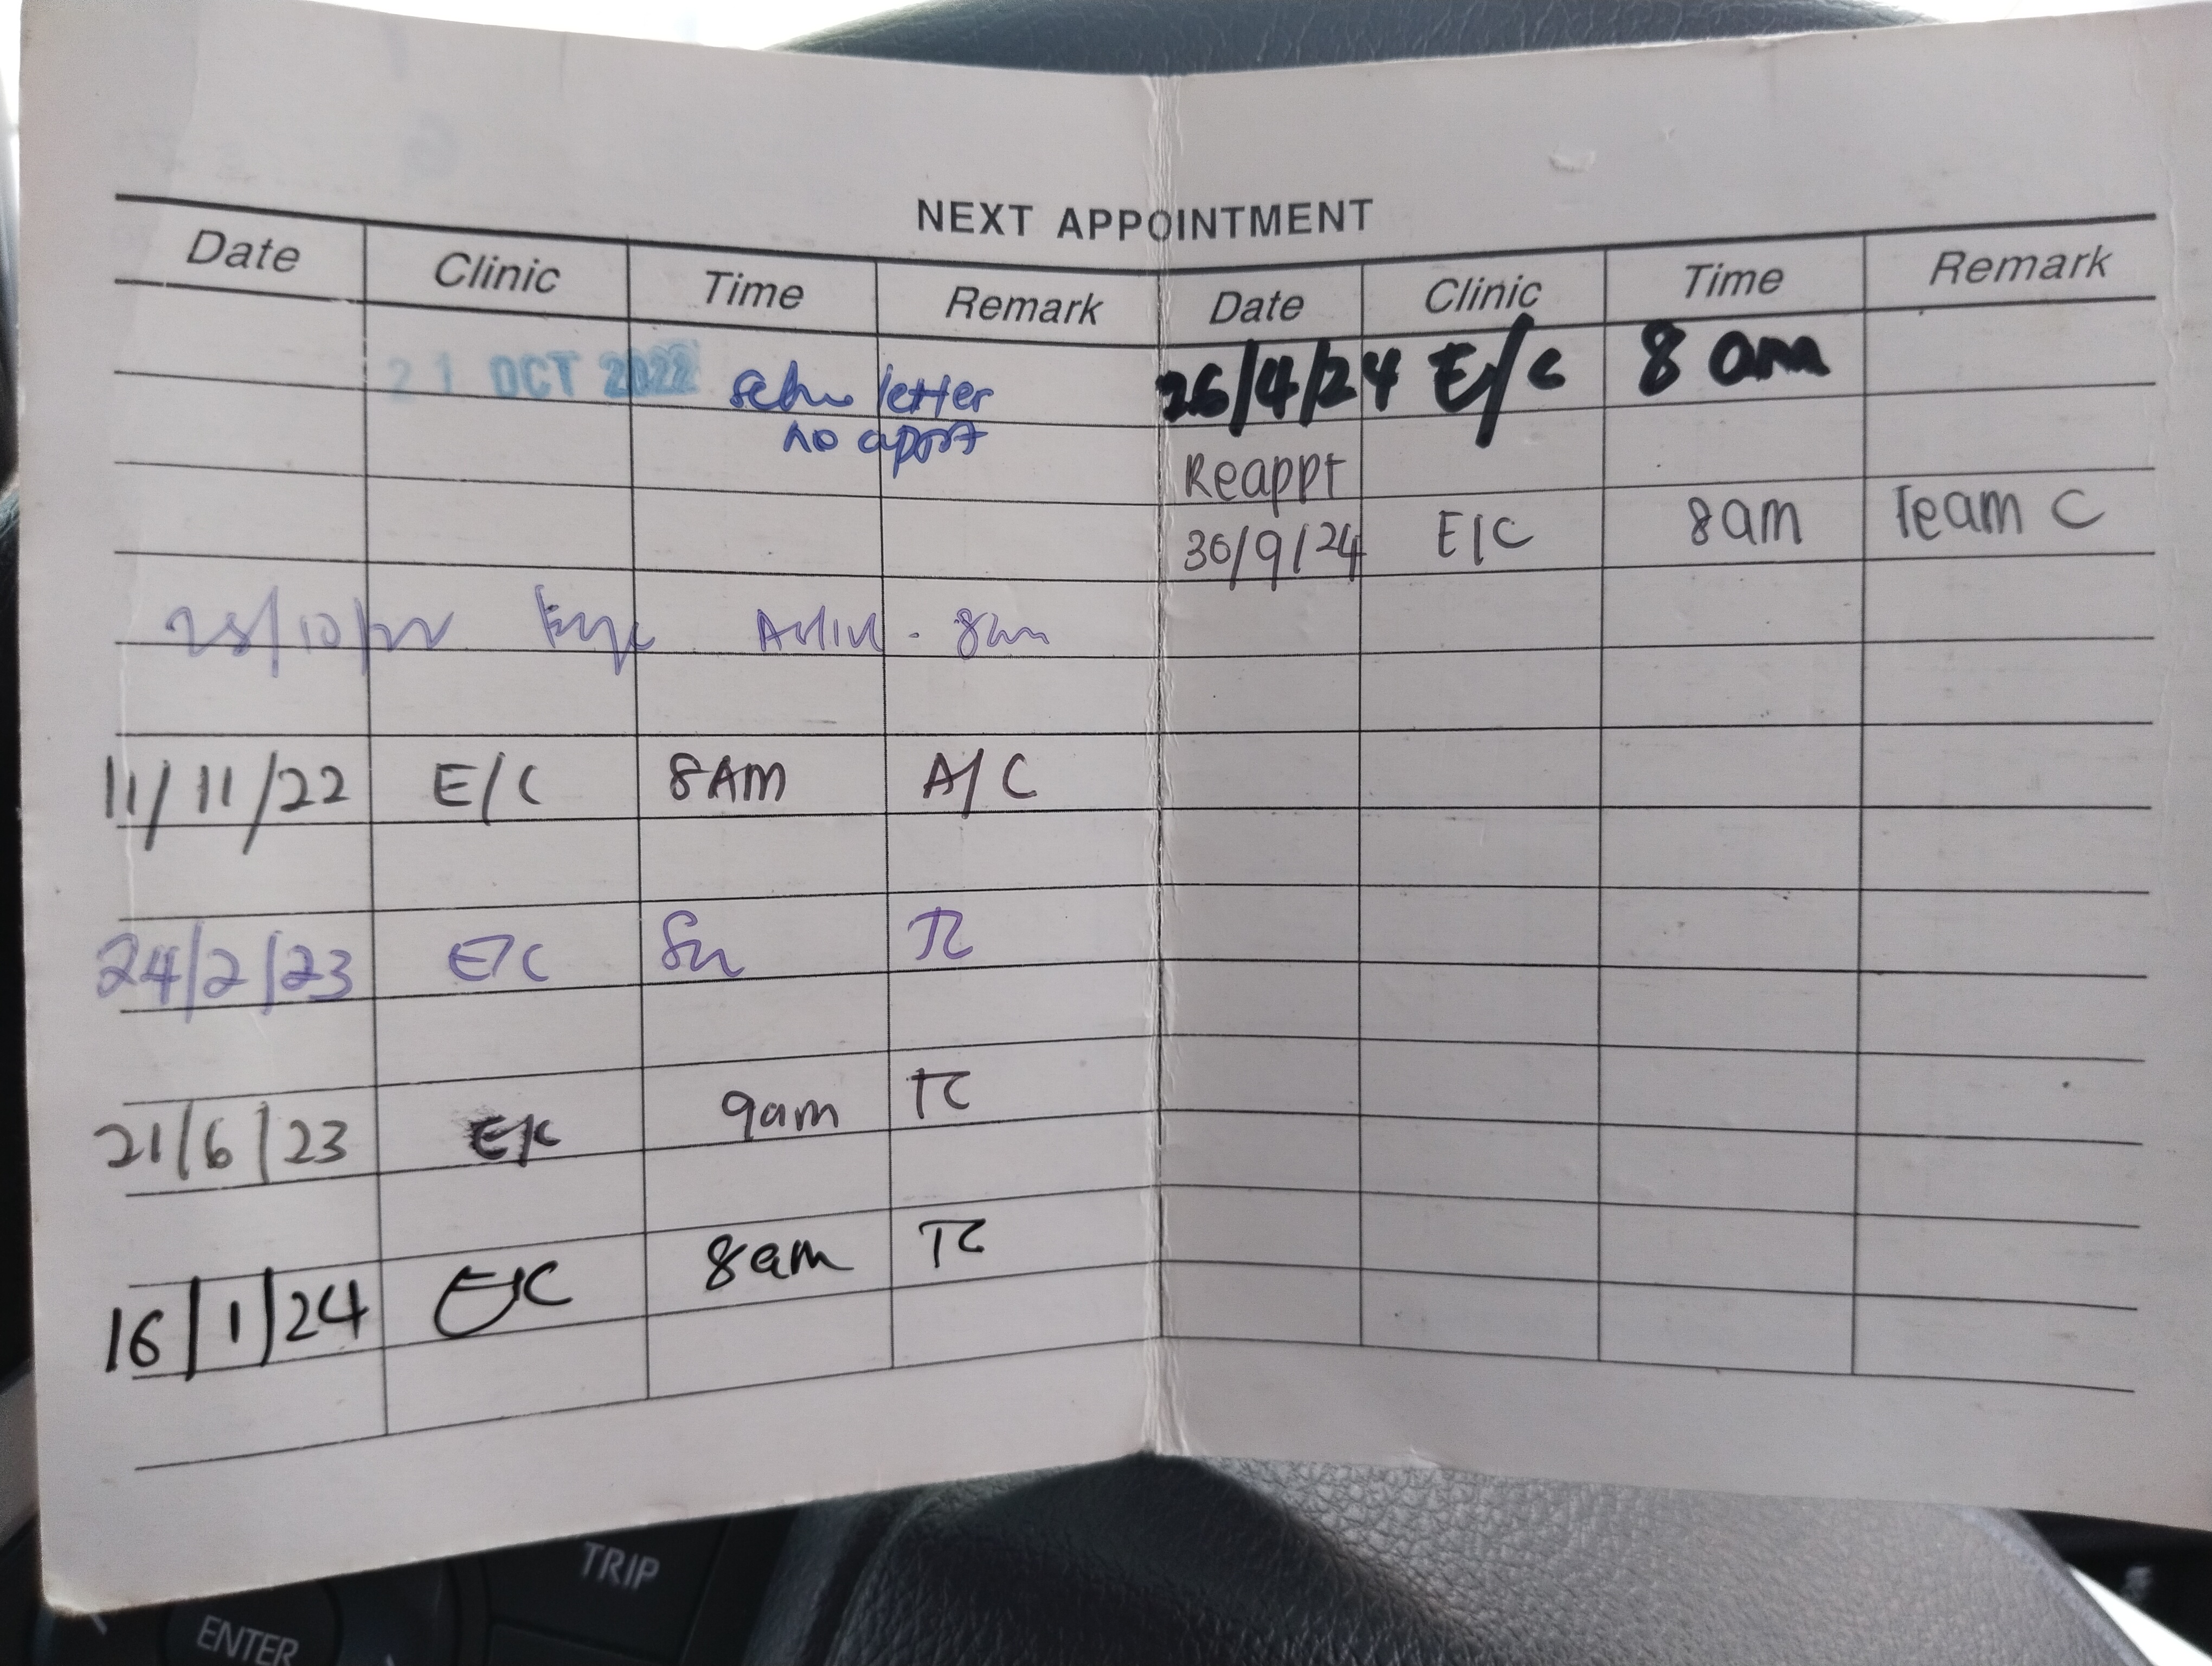 NEXT APPOINTMENT
Date Clinic Time Remark
21 OCT 2022 letter
no appt
25/10/22 Eye 8am
11/11/22 E/C 8AM A/C
24/2/23 E/C 8am TC
21/6/23 E/C 9am TC
16/1/24 E/C 8am TC
Date Clinic Time Remark
26/4/24 E/C 8am
Reappt
30/9/24 E/C 8am Team C
TRIP
ENTER